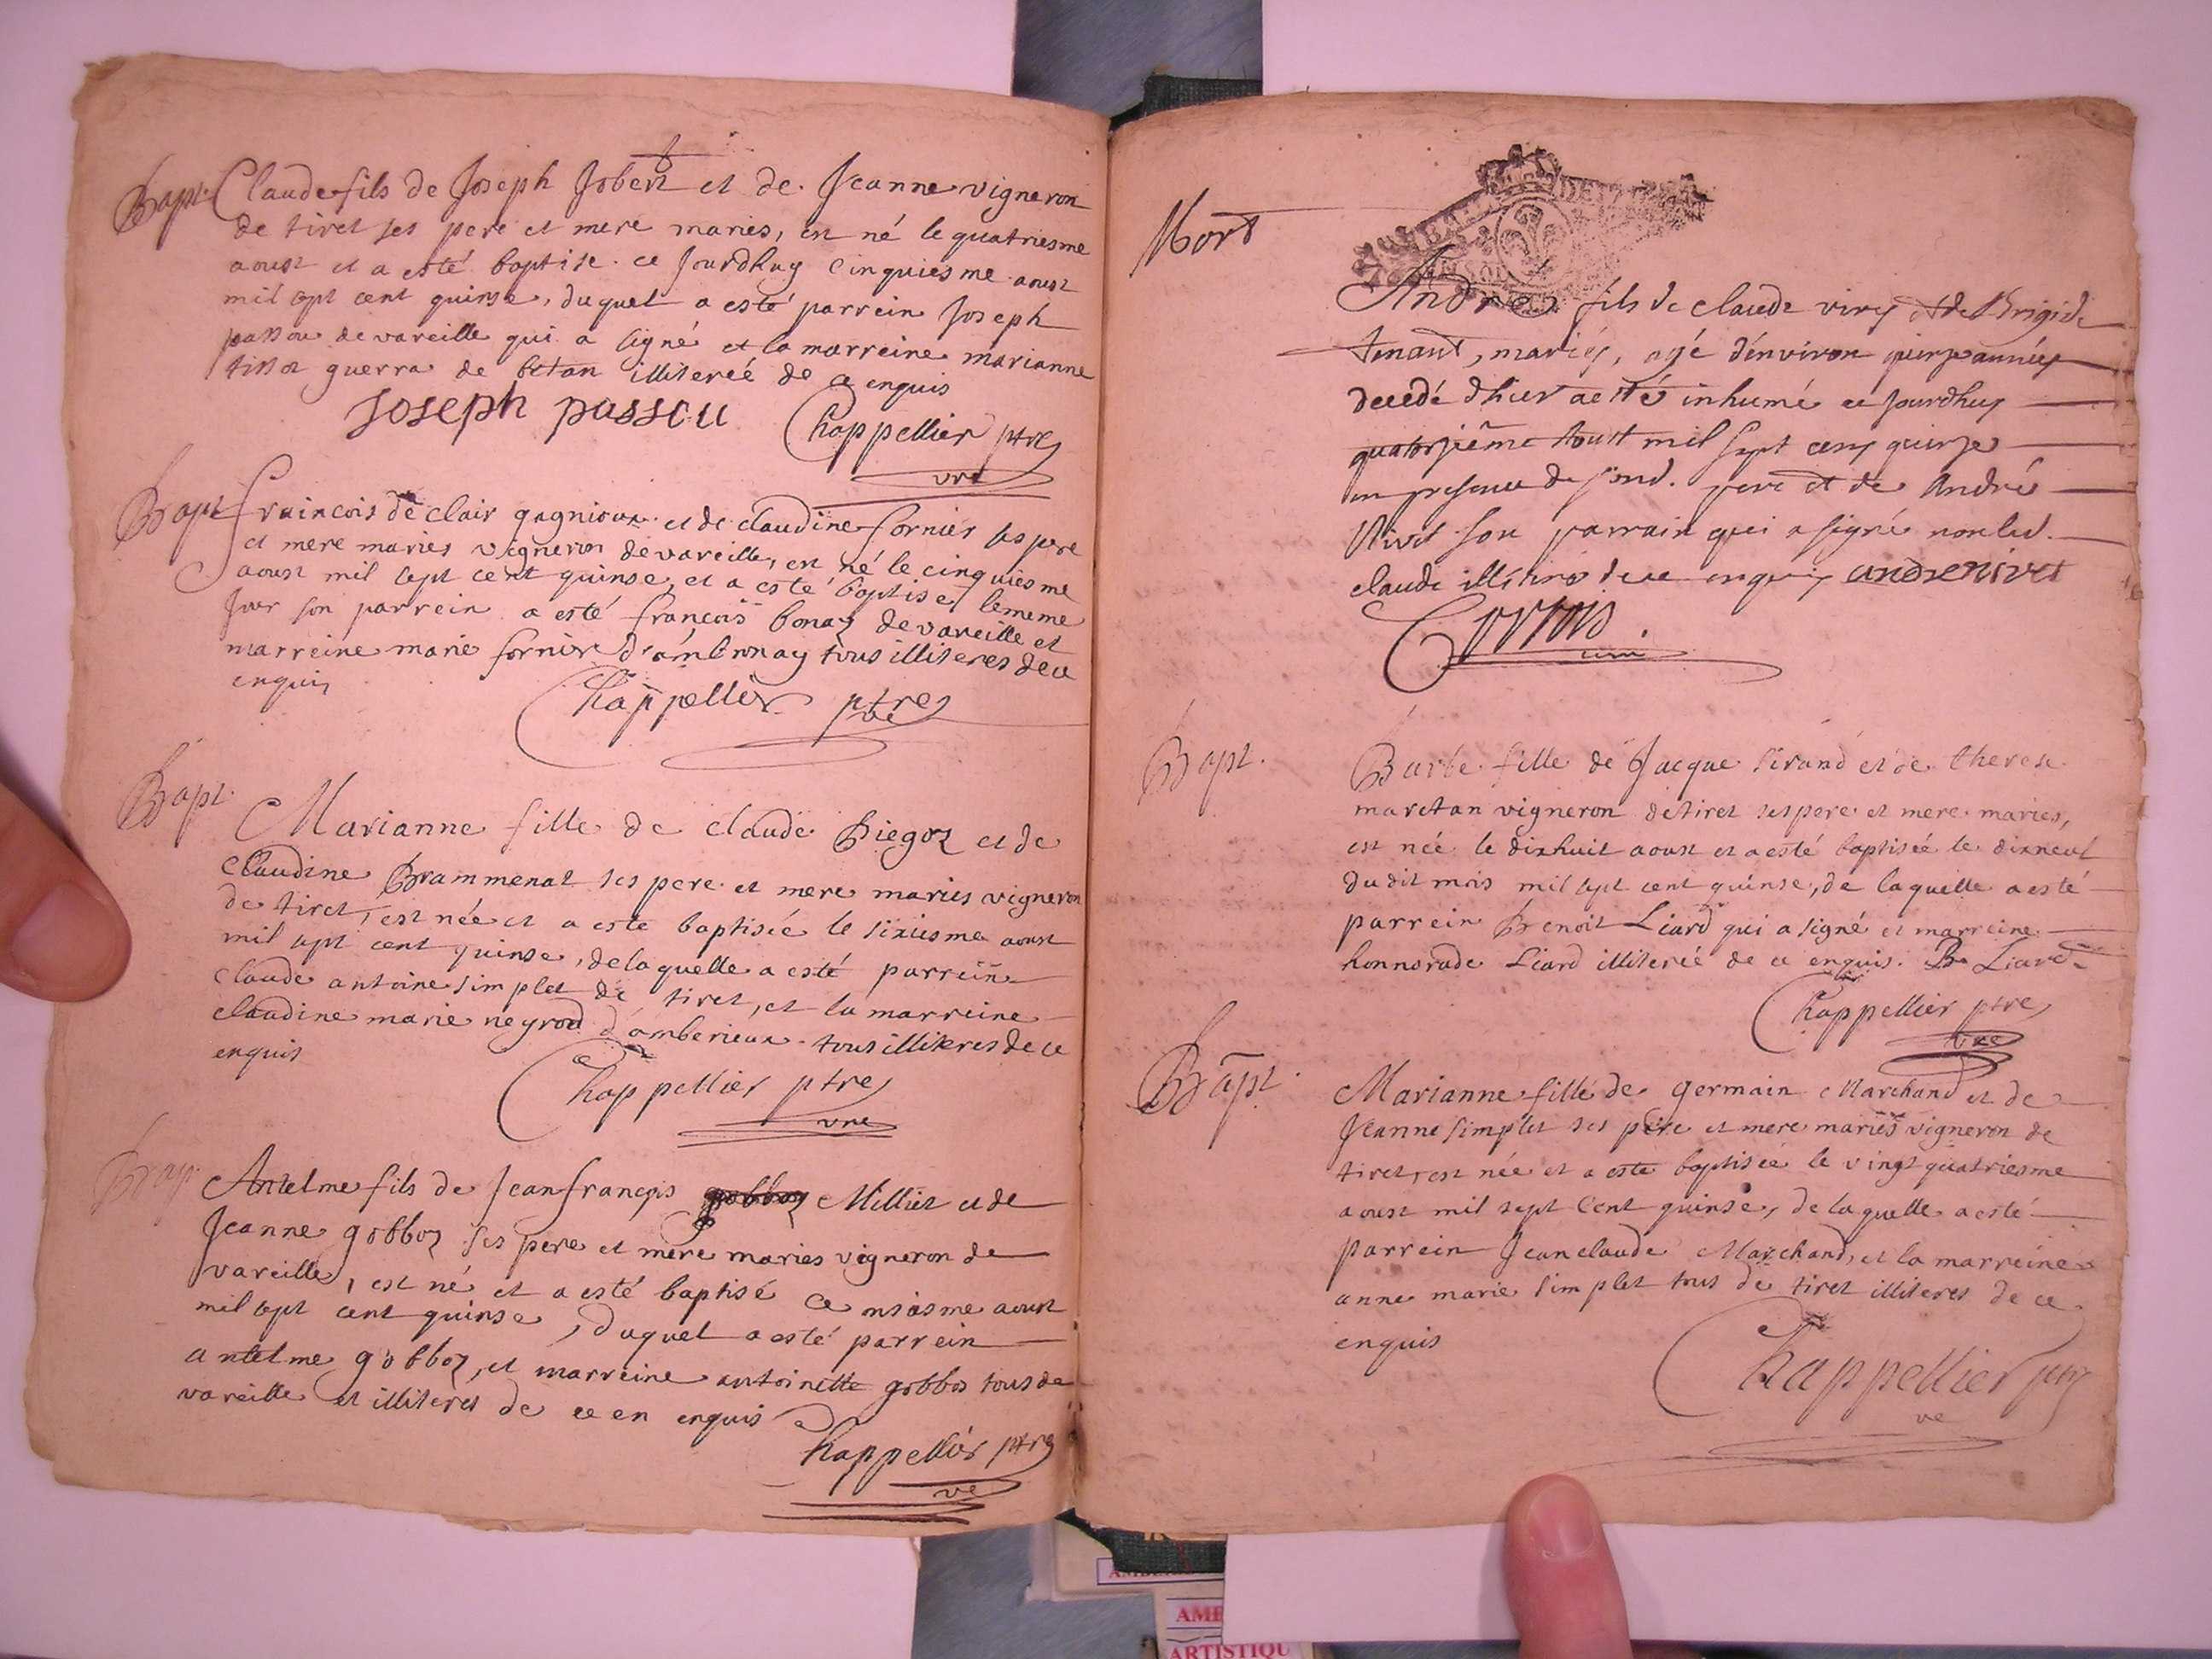 Bapt. Claude fils de Joseph Jobert et de Jeanne vigneron
de tiret ses pere et mere maries, est né le quatriesme
aoust et a esté baptise ce Jourdhuy cinquiesme aoust
mil sept cent quinse, duquel a esté parrein Joseph
passou de vareille qui a signé et la marreine marianne
tissot guerra de betan illiterée de ce enquis
Joseph passou Chappellier ptre
vre
Bapt francois de clair gagnioux et de claudine fornier ses pere
et mere maries vigneron de vareille, est né le cinquiesme
aoust mil sept cent quinse, et a esté baptise le meme
Jour son parrein a esté francois bonaz de vareille et
marreine marie fornier d'ambronay tous illiteres de ce
enquis
Chappellier ptre
vre
Bapt.
Marianne fille de claude Piegoz et de
Claudine Brammenat ses pere et mere maries vigneron
de tiret, est née et a este baptisée le sixiesme aoust
mil sept cent quinse, de laquelle a esté parrein
claude antoine simplet de tiret, et la marreine
claudine marie negrod d'amberieux tous illiteres de ce
enquis
Chappellier ptre
vre
Bap. Antelme fils de Jean françois gobboz Milliet et de
Jeanne gobboz ses pere et mere maries vigneron de
vareille, est né et a esté baptisé ce onsiesme aoust
mil sept cent quinse, duquel a esté parrein
antelme gobboz, et marreine antoinette gobboz tous de
vareille et illiteres de ce en enquis
Chappellier ptre
ve
Mort
André fils de claude virey et de Brigide
tenant, mariés, agé d'environ quinze années
decedé d'hier a esté inhumé ce jourdhuy
quatorzième aoust mil sept cens quinze
en presence de sond. pere et de André
Nivet son parrain qui a signé non led.
claude illitéré de ce enquis andre nivet
curé
Bapt. Barbe fille de Jacque sirand et de therese
maretan vigneron de tiret ses pere et mere maries,
est née le dixhuit aoust et a esté baptisée le dixneuf
du dit mois mil sept cent quinse, de laquelle a esté
parrein Benoit Liard qui a signé et marreine
honnorade Liard illiterée de ce enquis. B. Liard
Chappellier ptre
vre
Bapt. Marianne fille de germain Marchand et de
Jeanne simplet ses pere et mere mariés vigneron de
tiret, est née et a este baptisée le vingt quatriesme
aoust mil sept cent quinse, de laquelle a esté
parrein Jean claude Marchand, et la marreine
anne marie simplet tous de tiret illiteres de ce
enquis
Chappellier ptre
ve
AMB
ARTISTIQU